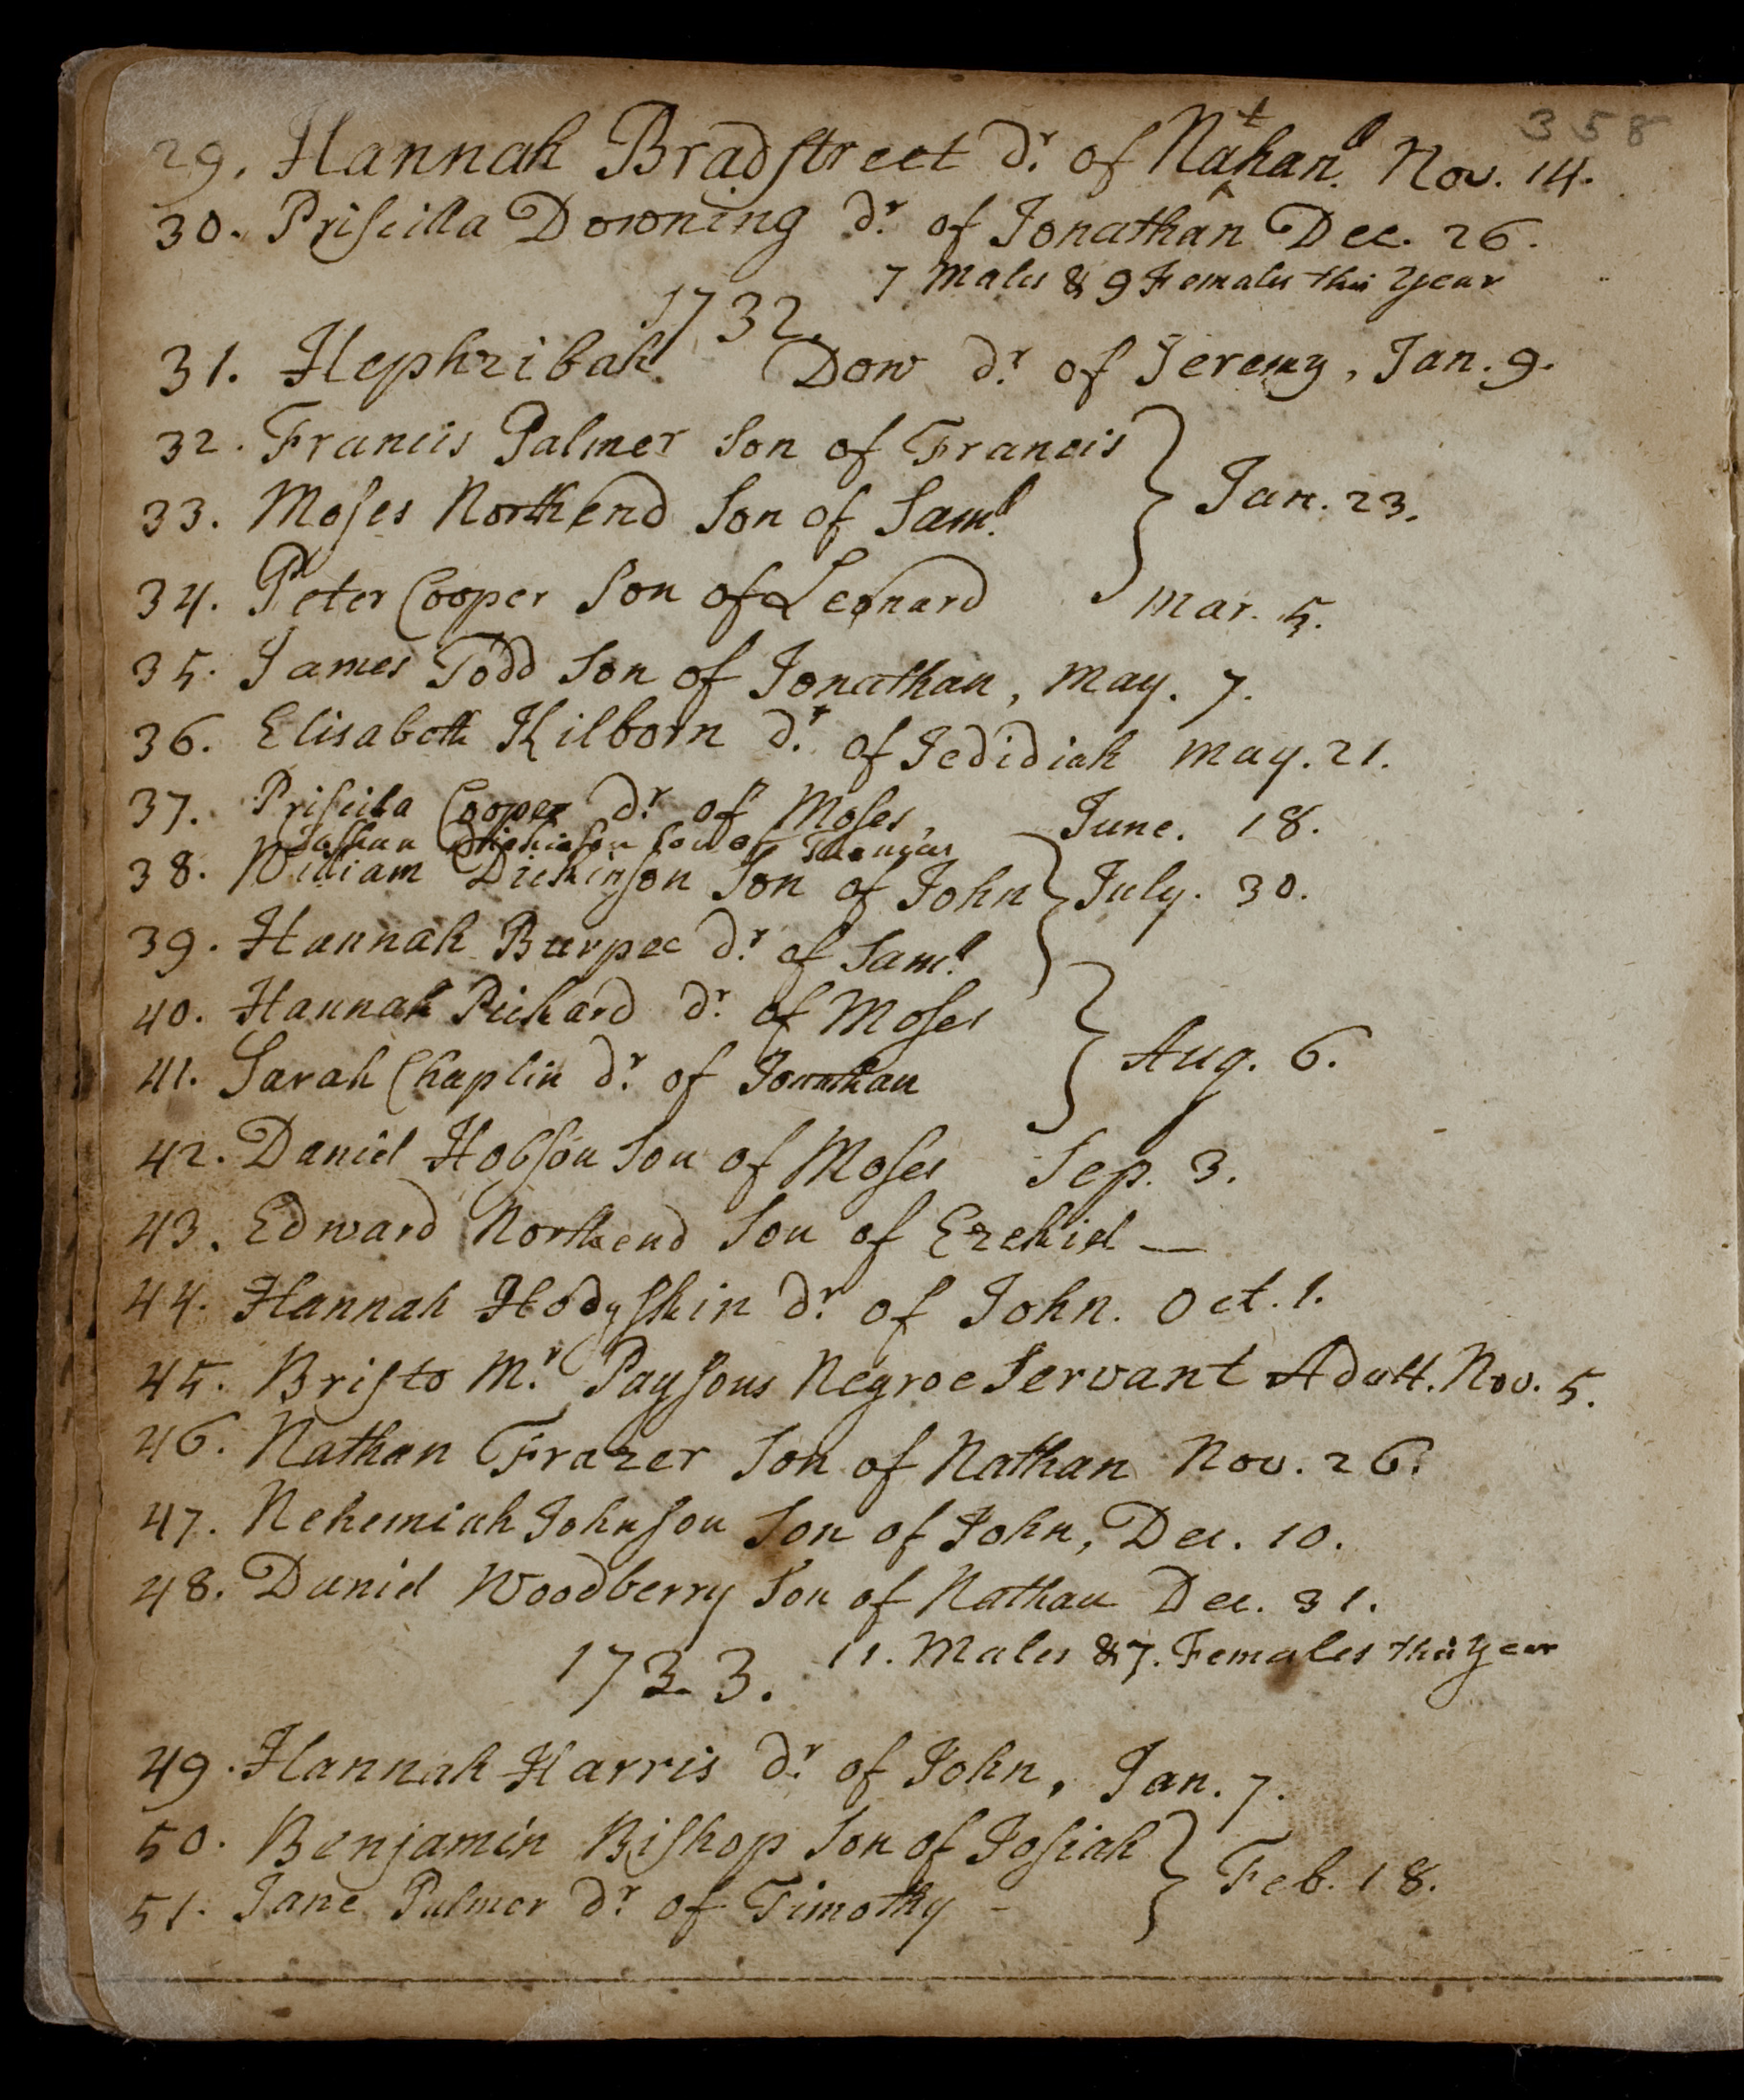 358
29. Hannah Bradstreet dr. of Nathanl. Nov. 14.
30. Priscilla Downing dr. of Jonathan Dec. 26.
7 Males & 9 Females this Year
1732.
31. Hephzibah Dow dr. of Jeremy, Jan. 9.
32. Francis Palmer Son of Francis
33. Moses Northend Son of Saml. } Jan. 23.
34. Peter Cooper Son of Leonard Mar. 5.
35. James Todd Son of Jonathan, May. 7.
36. Elisabeth Kilborn dr. of Jedidiah May. 21.
37. Priscilla Cooper dr. of Moses, June. 18.
Dickinson Son of
38. William Dickinson Son of John } July. 30.
39. Hannah Burpee dr. of Saml.
40. Hannah Pickard dr. of Moses
41. Sarah Chaplin dr. of Jonathan } Aug. 6.
42. Daniel Hobson Son of Moses Sep. 3.
43. Edward Northend Son of Ezekiel —
44. Hannah Hodgskin dr. of John. Oct. 1.
45. Bristo Mr. Paysons Negroe Servant Adult. Nov. 5.
46. Nathan Frazer Son of Nathan Nov. 26.
47. Nehemiah Johnson Son of John, Dec. 10.
48. Daniel Woodberry Son of Nathan Dec. 31.
11. Males & 7. Females this year
1733.
49. Hannah Harris dr. of John, Jan. 7.
50. Benjamin Bishop Son of Josiah
51. Jane Palmer dr. of Timothy - } Feb. 18.